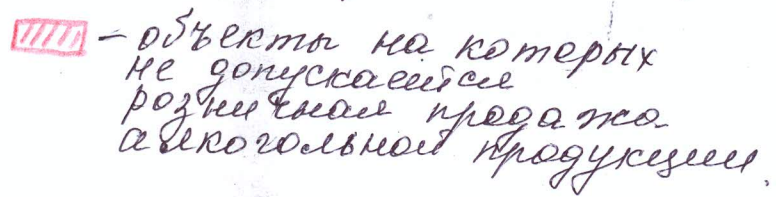 – объекты на которых
не допускается
розничная продажа
алкогольной продукции.